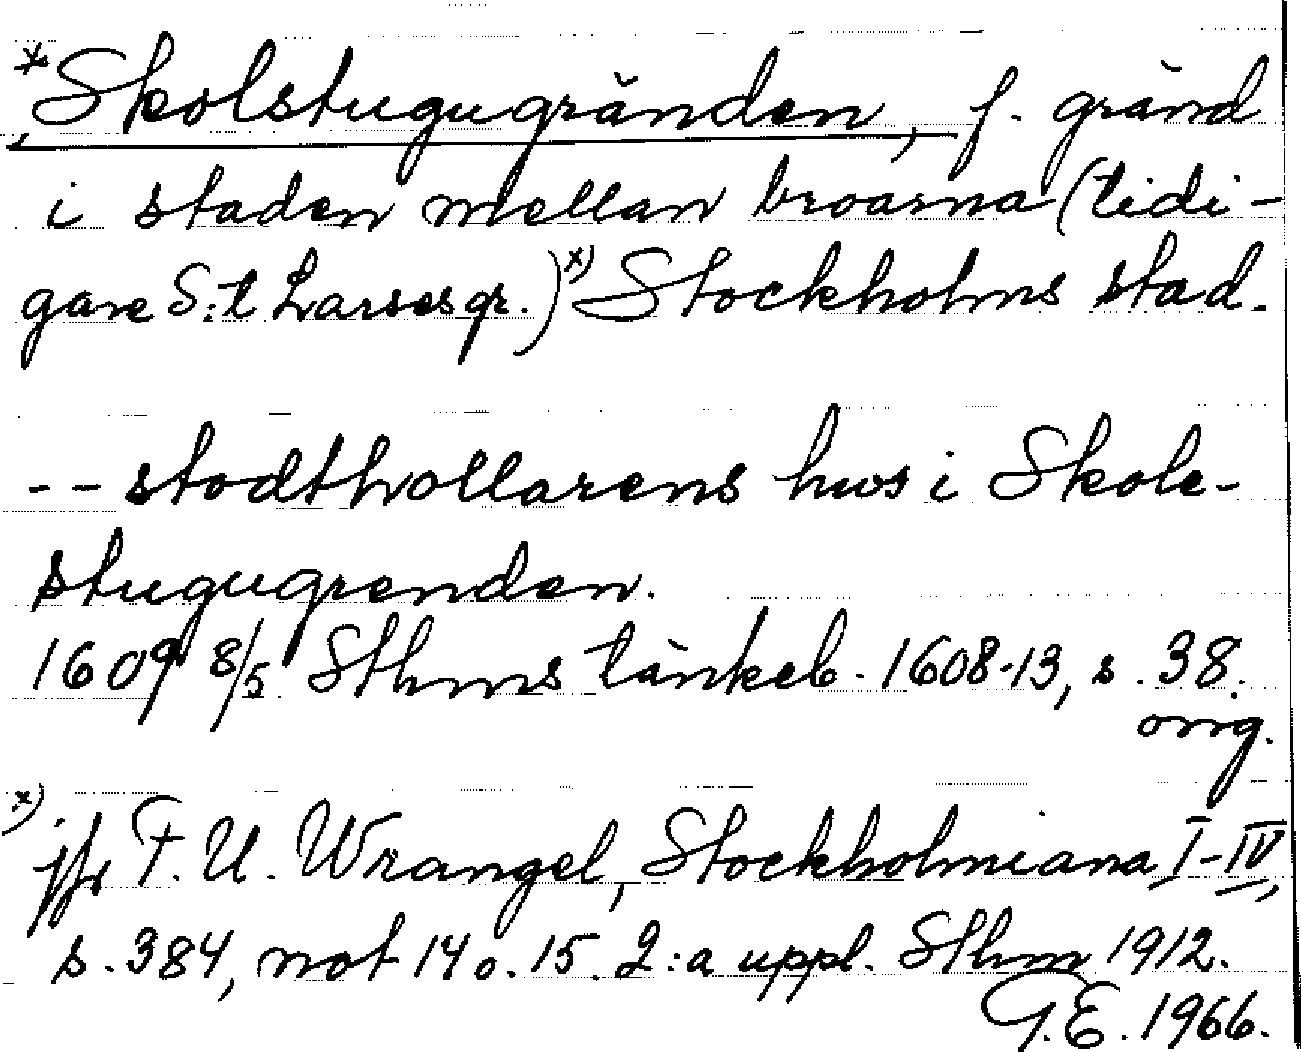 *Skolstugugränden, f. gränd
i staden mellan broarna (tidi-
gare S:t Larsesgr.)x) Stockholms stad.
-- stodthollarens hws i Skole-
stugugrenden.
1609 8/5 Sthms tänkeb. 1608-13, s. 38.
orig.
x) jfr F. U. Wrangel, Stockholmiana I-IV,
s. 384, not 14 o. 15. 2:a uppl. Sthm 1912.
G.E. 1966.